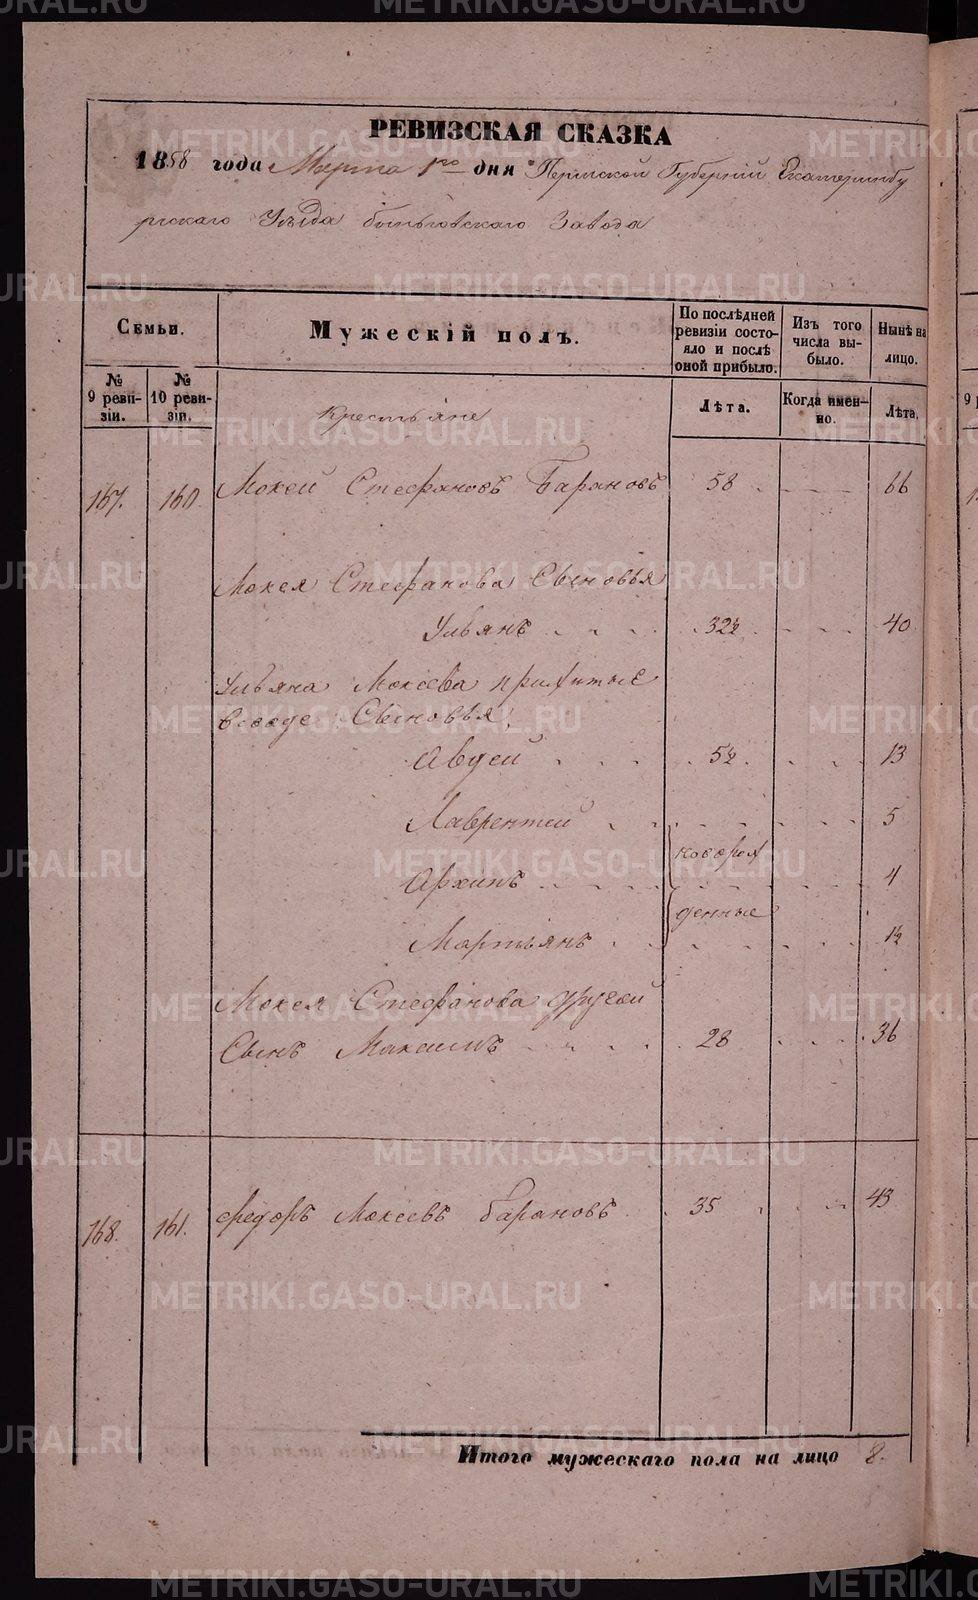 РЕВИЗСКАЯ СКАЗКА
1858 года Марта 1го дня Пермской Губерній Екатеринбу
ргскаго Уѣзда Быньговскаго Завода
Семьи.
Мужескій полъ.
По послѣдней ревизіи состо-яло и послѣ оной прибыло.
Изъ того числа вы-было.
Нынѣ на лицо.
№ 9 реви-зіи.
№ 10 реви-зіи.
Лѣта.
Когда имен-но.
Лѣта.
Крестьяне
167. 160. Мокей Стефановъ Барановъ 58 66
Мокея Стефанова Сыновья
Ульянъ 32½ 40
Ульяна Мокеева прижитые
Сыновья:
Авдей 5½ 13
Лаврентей 5
новорож
Архипъ 4
денные
Мартьянъ 1½
Мокея Стефанова другой
Сынъ Максимъ 28 36
168. 161. Федоръ Мокеевъ Барановъ 35 43
Итого мужескаго пола на лицо 8.
METRIKI.GASO-URAL.RU